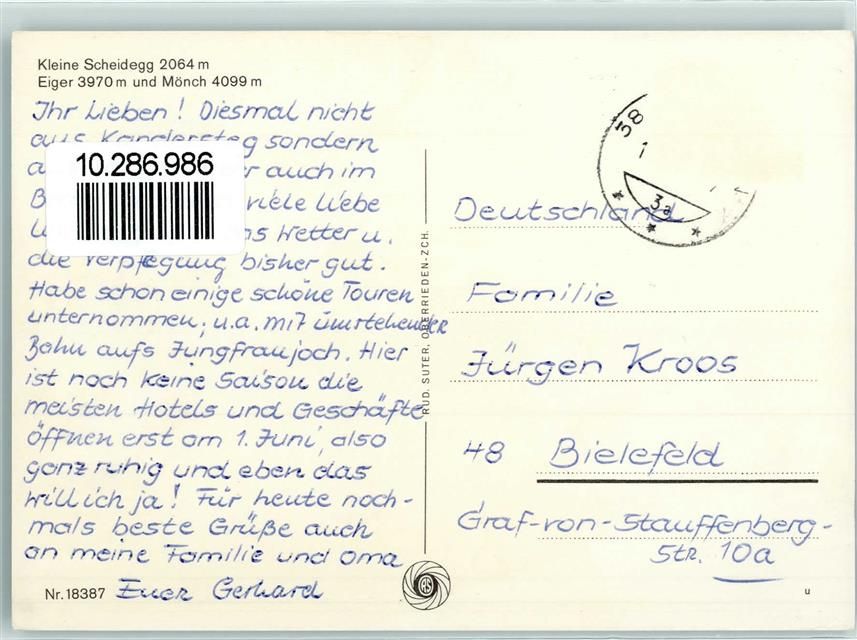 Kleine Scheidegg 2064 m
Eiger 3970 m und Mönch 4099 m
Ihr Lieben! Diesmal nicht
aus Kandersteg sondern
auch im
10.286.986
viele liebe
Wetter u.
die Verpflegung bisher gut.
Habe schon einige schöne Touren
unternommen, u.a. mit umstehender
Bahn aufs Jungfraujoch. Hier
ist noch keine Saison die
meisten Hotels und Geschäfte
öffnen erst am 1. Juni, also
ganz ruhig und eben das
will ich ja! Für heute noch-
mals beste Grüße auch
an meine Familie und Oma
Nr. 18387 Euer Gerhard
RUD. SUTER, OBERRIEDEN-ZCH.
38
1
3a
Deutschland
Familie
Jürgen Kroos
48 Bielefeld
Graf-von-Stauffenberg-
Str. 10a
u